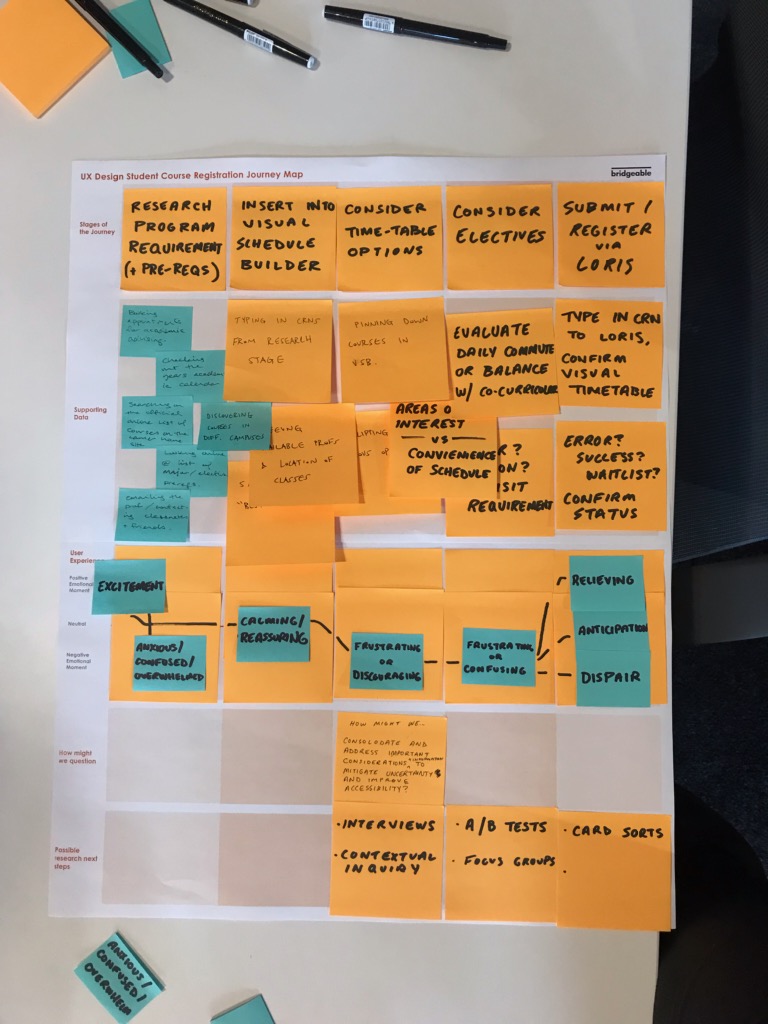 UX Design Student Course Registration Journey Map
bridgeable
Stages of
the Journey
RESEARCH
PROGRAM
REQUIREMENT
(+ PRE-REQS)
INSERT INTO
VISUAL
SCHEDULE
BUILDER
CONSIDER
TIME-TABLE
OPTIONS
CONSIDER
ELECTIVES
SUBMIT /
REGISTER
VIA
LORIS
Supporting
Data
Booking
appointments
for academic
advising.
Checking
out the
years academ
ic calendar
Searching in
the official
online list of
courses on the
site.
DISCOVERING
COURSES IN
DIFF. CAMPUSES
list of
major/elective
prereqs
Emailing the
prof /
classmates
+ friends.
TYPING IN CRNS
FROM RESEARCH
STAGE
& LOCATION OF
CLASSES
PINNING DOWN
COURSES IN
VSB.
EVALUATE
DAILY COMMUTE
OR BALANCE
W/ CO-CURRICULAR
AREAS O
INTEREST
VS
CONVIENIENCE
OF SCHEDULE
R?
ON?
SIT
REQUIREMENT
TYPE IN CRN
TO LORIS,
CONFIRM
VISUAL
TIMETABLE
ERROR?
SUCCESS?
WAITLIST?
CONFIRM
STATUS
User
Experience
Positive
Emotional
Moment
Neutral
Negative
Emotional
Moment
EXCITEMENT
ANXIOUS/
CONFUSED/
OVERWHELMED
CALMING/
REASSURING
FRUSTRATING
OR
DISCOURAGING
FRUSTRATING
OR
CONFUSING
RELIEVING
ANTICIPATION
DESPAIR
How might
we question
HOW MIGHT WE...
CONSOLODATE AND
ADDRESS IMPORTANT
CONSIDERATIONS TO
MITIGATE UNCERTAINTY
AND IMPROVE
ACCESSIBILITY?
Possible
research next
steps
· INTERVIEWS
· CONTEXTUAL
INQUIRY
· A/B TESTS
· FOCUS GROUPS
· CARD SORTS
·
ANXIOUS/
CONFUSED/
OVERWHELM